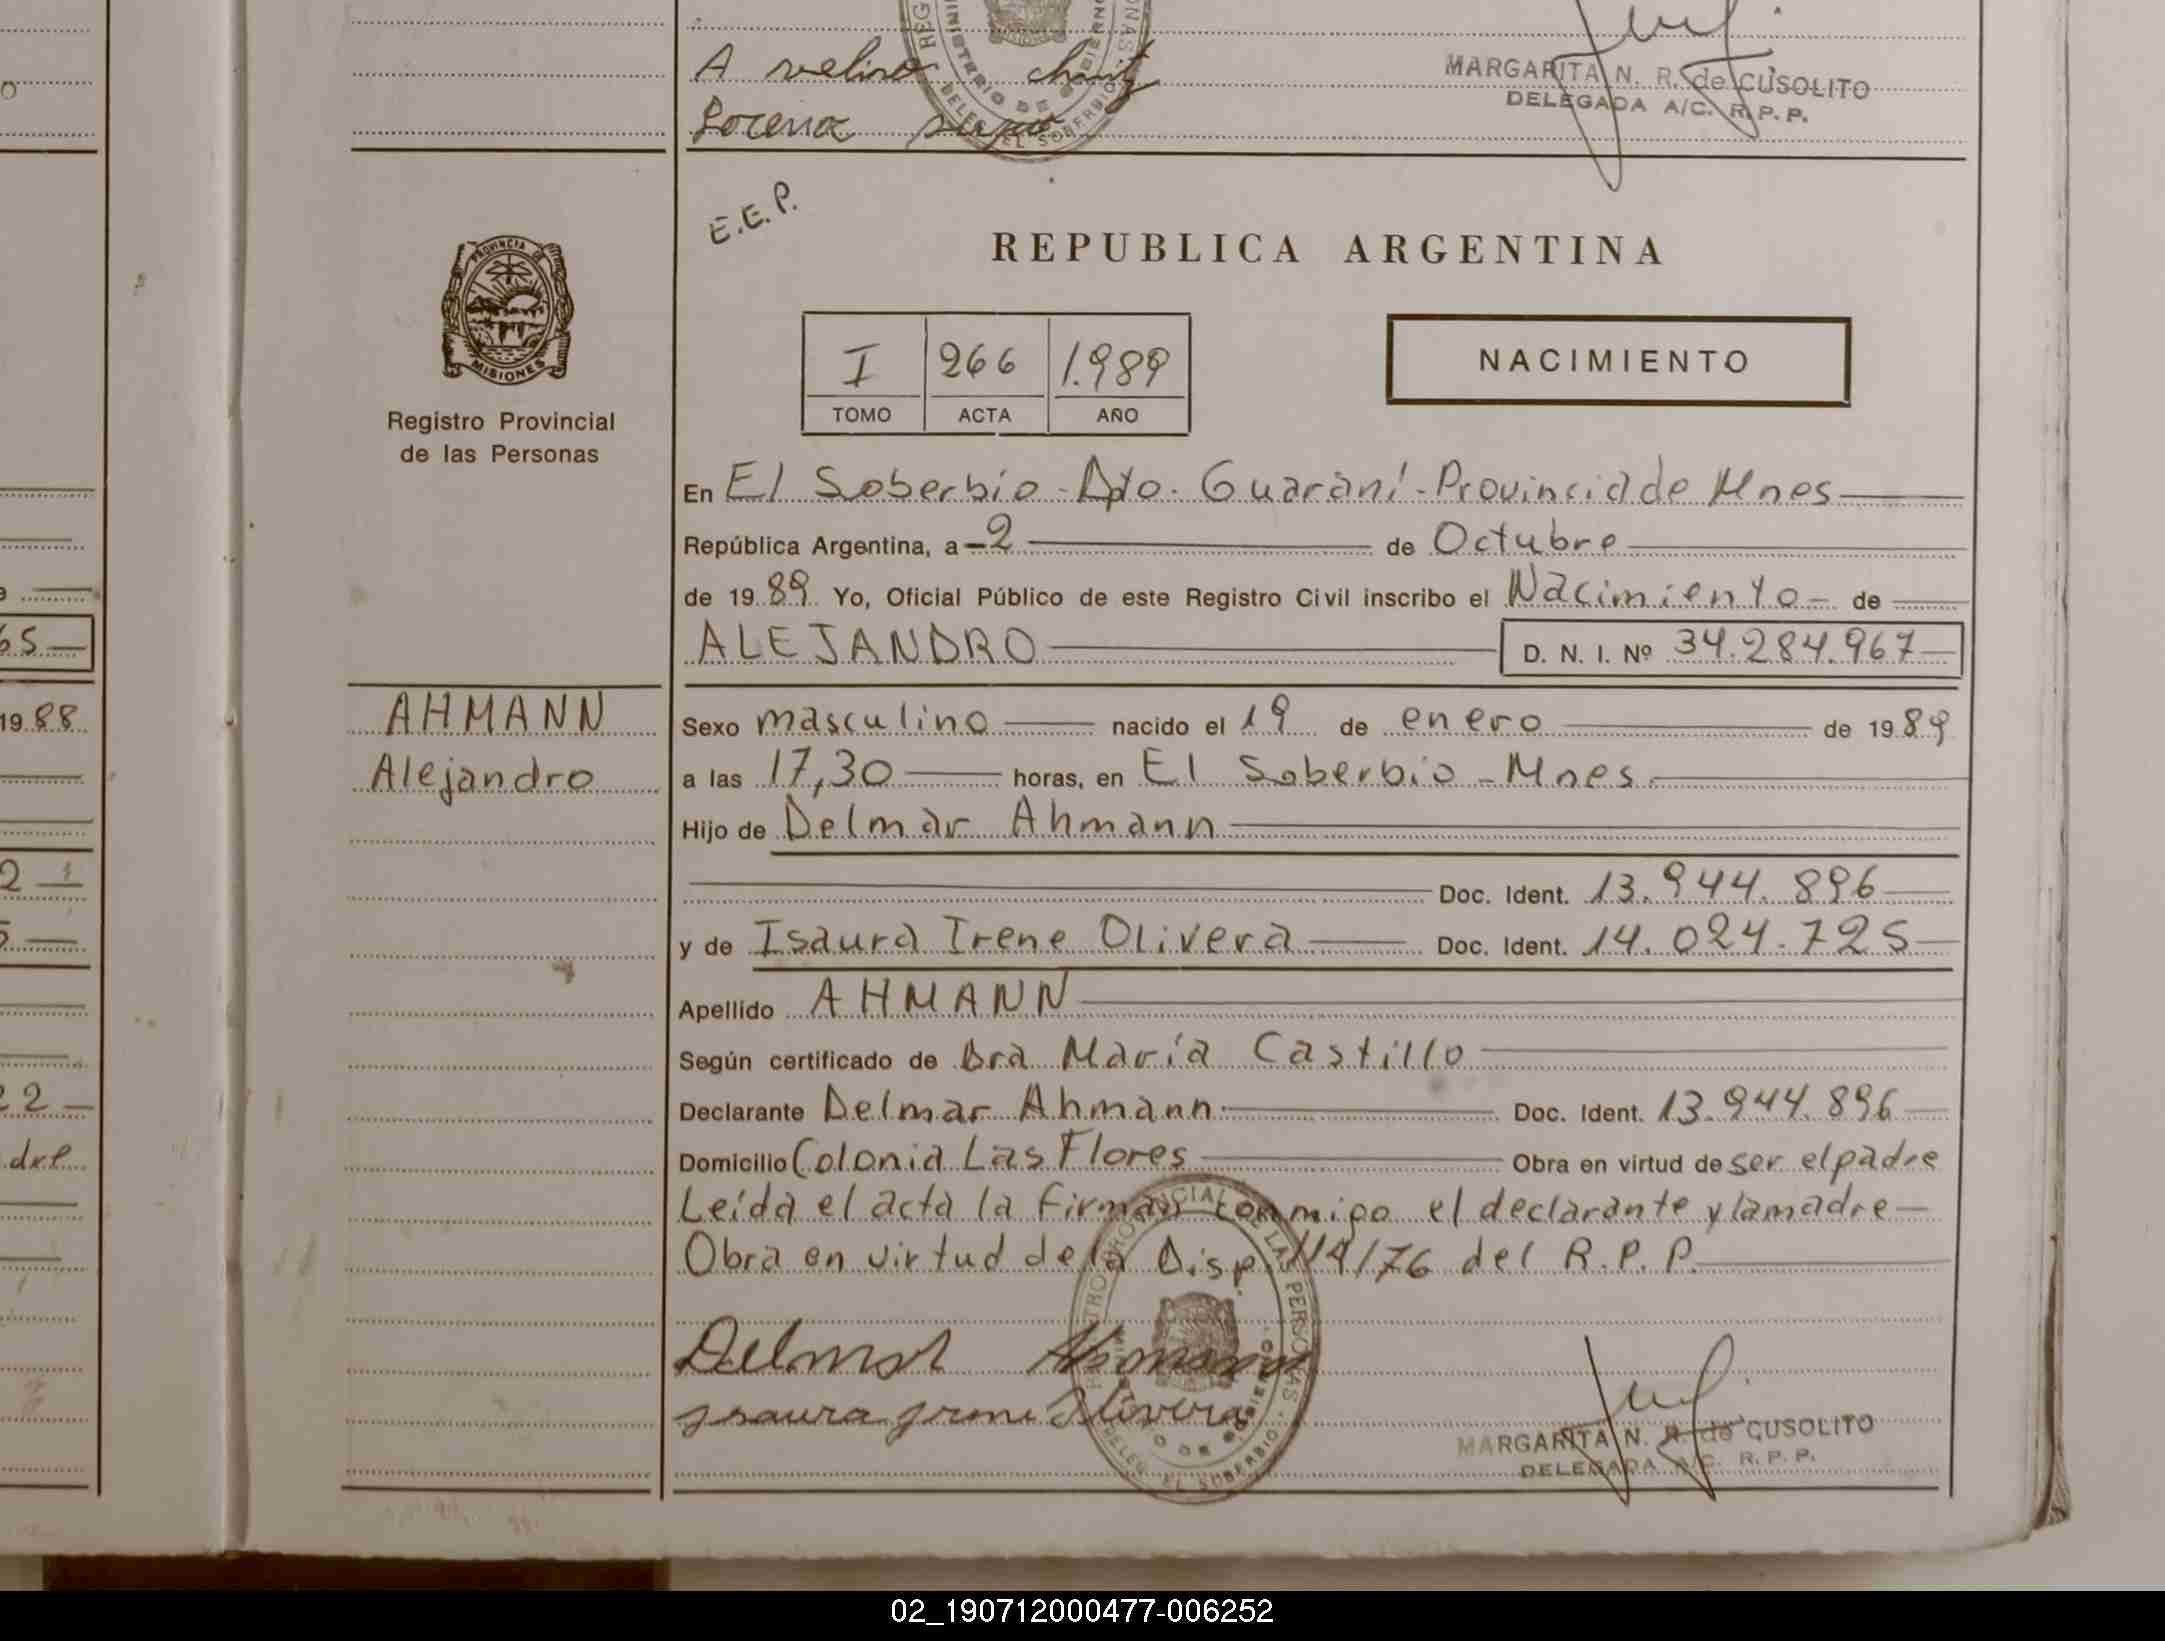 A velino chuitz
Lorena
MARGARITA N. R. de CUSOLITO
DELEGADA A/C. R.P.P.
EL SOBERBIO
E.E.P.
REPUBLICA ARGENTINA
PROVINCIA DE
MISIONES
Registro Provincial
de las Personas
I 266 1.989
TOMO ACTA AÑO
NACIMIENTO
En El Soberbio - Dpto. Guaraní - Provincia de Mnes
República Argentina, a - 2 de Octubre
de 19 89 Yo, Oficial Público de este Registro Civil inscribo el Nacimiento - de
ALEJANDRO D. N. I. Nº 34.284.967
AHMANN
Alejandro
Sexo masculino nacido el 19 de enero de 19 89
a las 17,30 horas, en El Soberbio - Mnes.
Hijo de Delmar Ahmann
Doc. Ident. 13.944.896
y de Isaura Irene Olivera Doc. Ident. 14.024.725
Apellido AHMANN
Según certificado de Dra María Castillo
Declarante Delmar Ahmann Doc. Ident. 13.944.896
Domicilio Colonia Las Flores Obra en virtud de ser el padre
Leída el acta la firman conmigo el declarante y la madre
Obra en virtud de la Disp. 114/76 del R.P.P.
Delmar Ahmann
Isaura Irene Olivera
REGISTRO PROVINCIAL DE LAS PERSONAS
MINISTERIO DE GOBIERNO
DELEG. EL SOBERBIO
MARGARITA N. R. de CUSOLITO
DELEGADA A/C. R.P.P.
65
19 88
2
5
22
dre
02_190712000477-006252